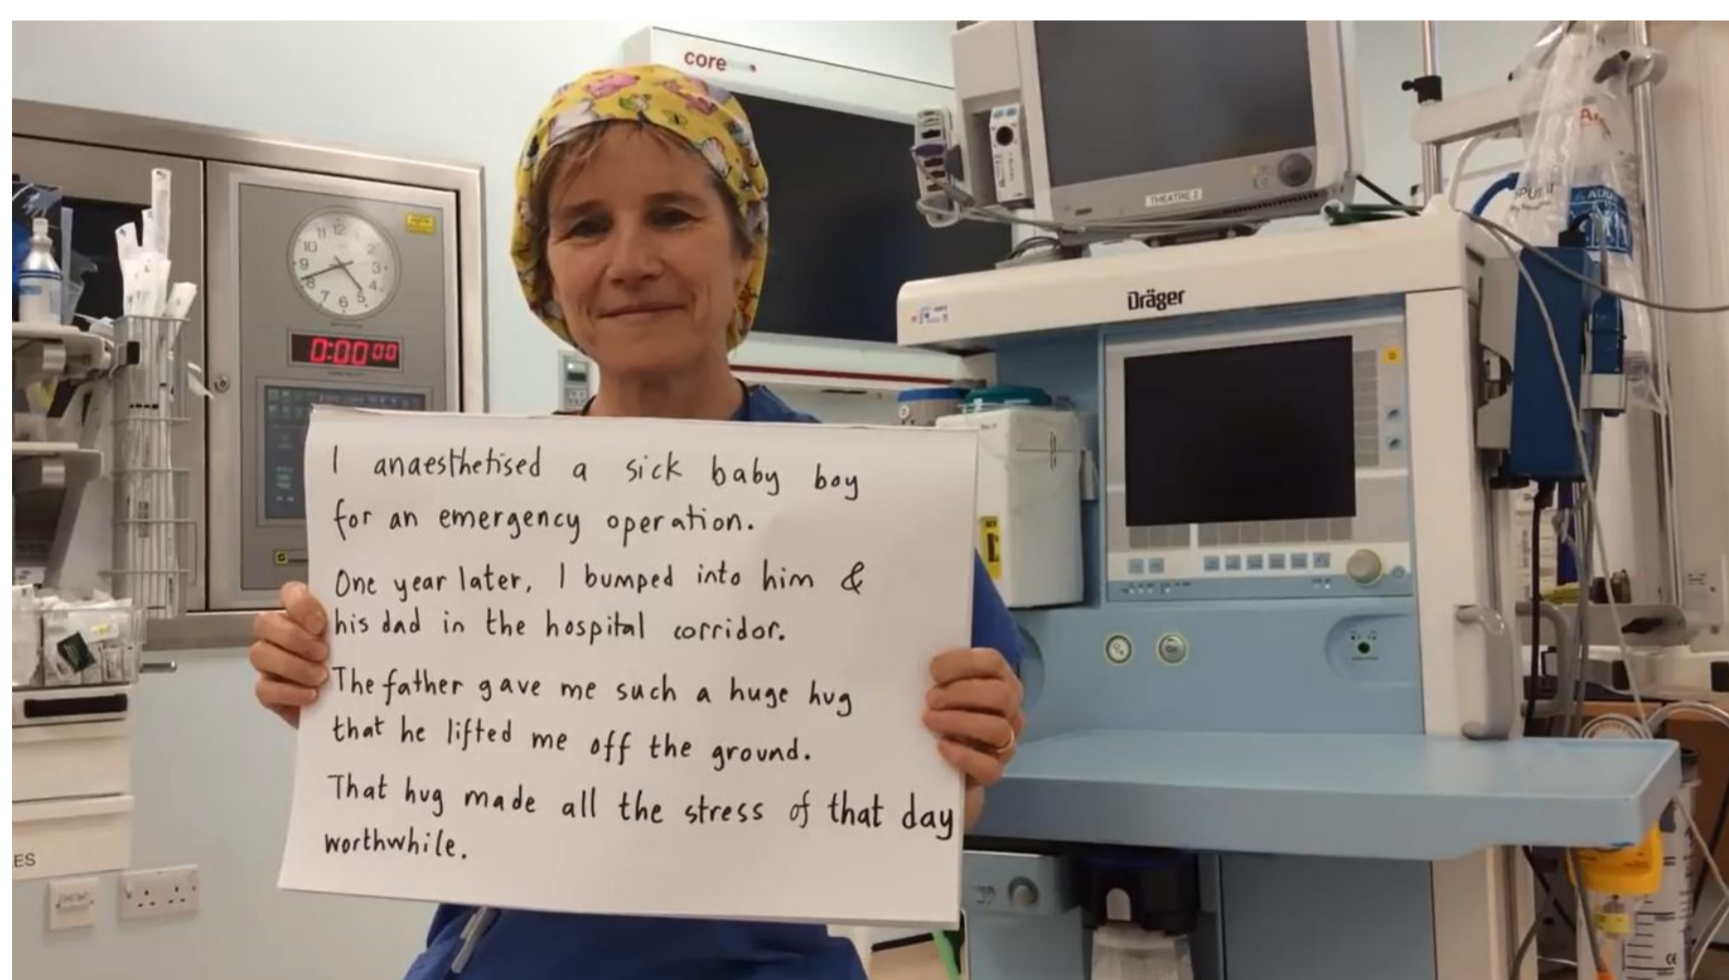 core
12
11
10
9
8
7
6
5
4
3
2
0:00 00
THEATRE 2
Dräger
I anaesthetised a sick baby boy
for an emergency operation.
One year later, I bumped into him &
his dad in the hospital corridor.
The father gave me such a huge hug
that he lifted me off the ground.
That hug made all the stress of that day
worthwhile.
ES